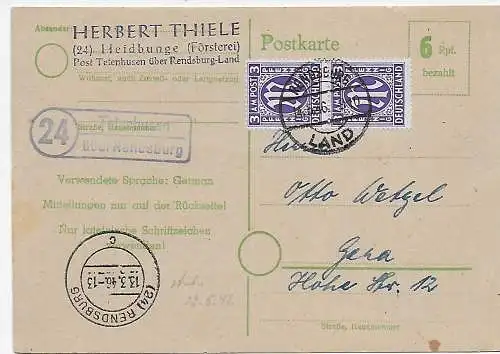 Absender:
HERBERT THIELE
(24) Heidbunge (Försterei)
Post Tetenhusen über Rendsburg-Land
Wohnort, auch Zustell- oder Leitpostamt
24
Tetenhusen
über Rendsburg
Straße, Hausnummer
Verwendete Sprache: German
Mitteilungen nur auf der Rückseite!
Nur lateinische Schriftzeichen
verwenden!
13.3.46.-13
(24) RENDSBURG
c
Postkarte
6 Rpf.
bezahlt
3 AM POST PFENNIG DEUTSCHLAND
3 AM POST PFENNIG DEUTSCHLAND
LAND
Herrn
Otto Wetzel
Gera
Hohe Str. 12
Straße, Hausnummer